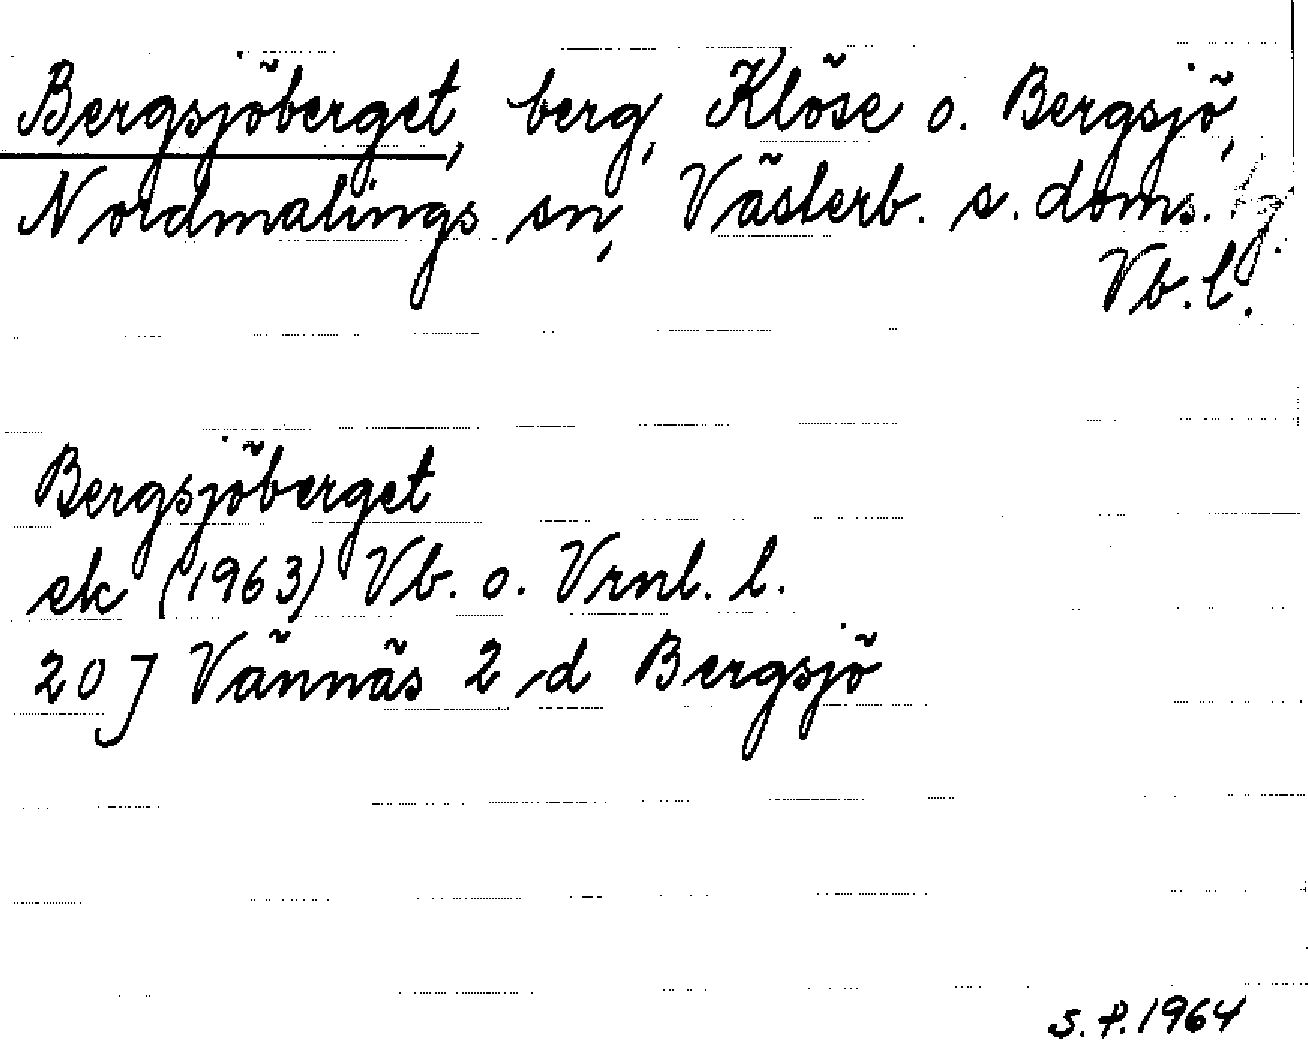 Bergsjöberget, berg, Klöse o. Bergsjö,
Nordmalings sn, Västerb. s. doms. tg.
Vb. l.
Bergsjöberget
ek (1963) Vb. o. Vrnl. l.
20 J Vännäs 2 d Bergsjö
S. P. 1964